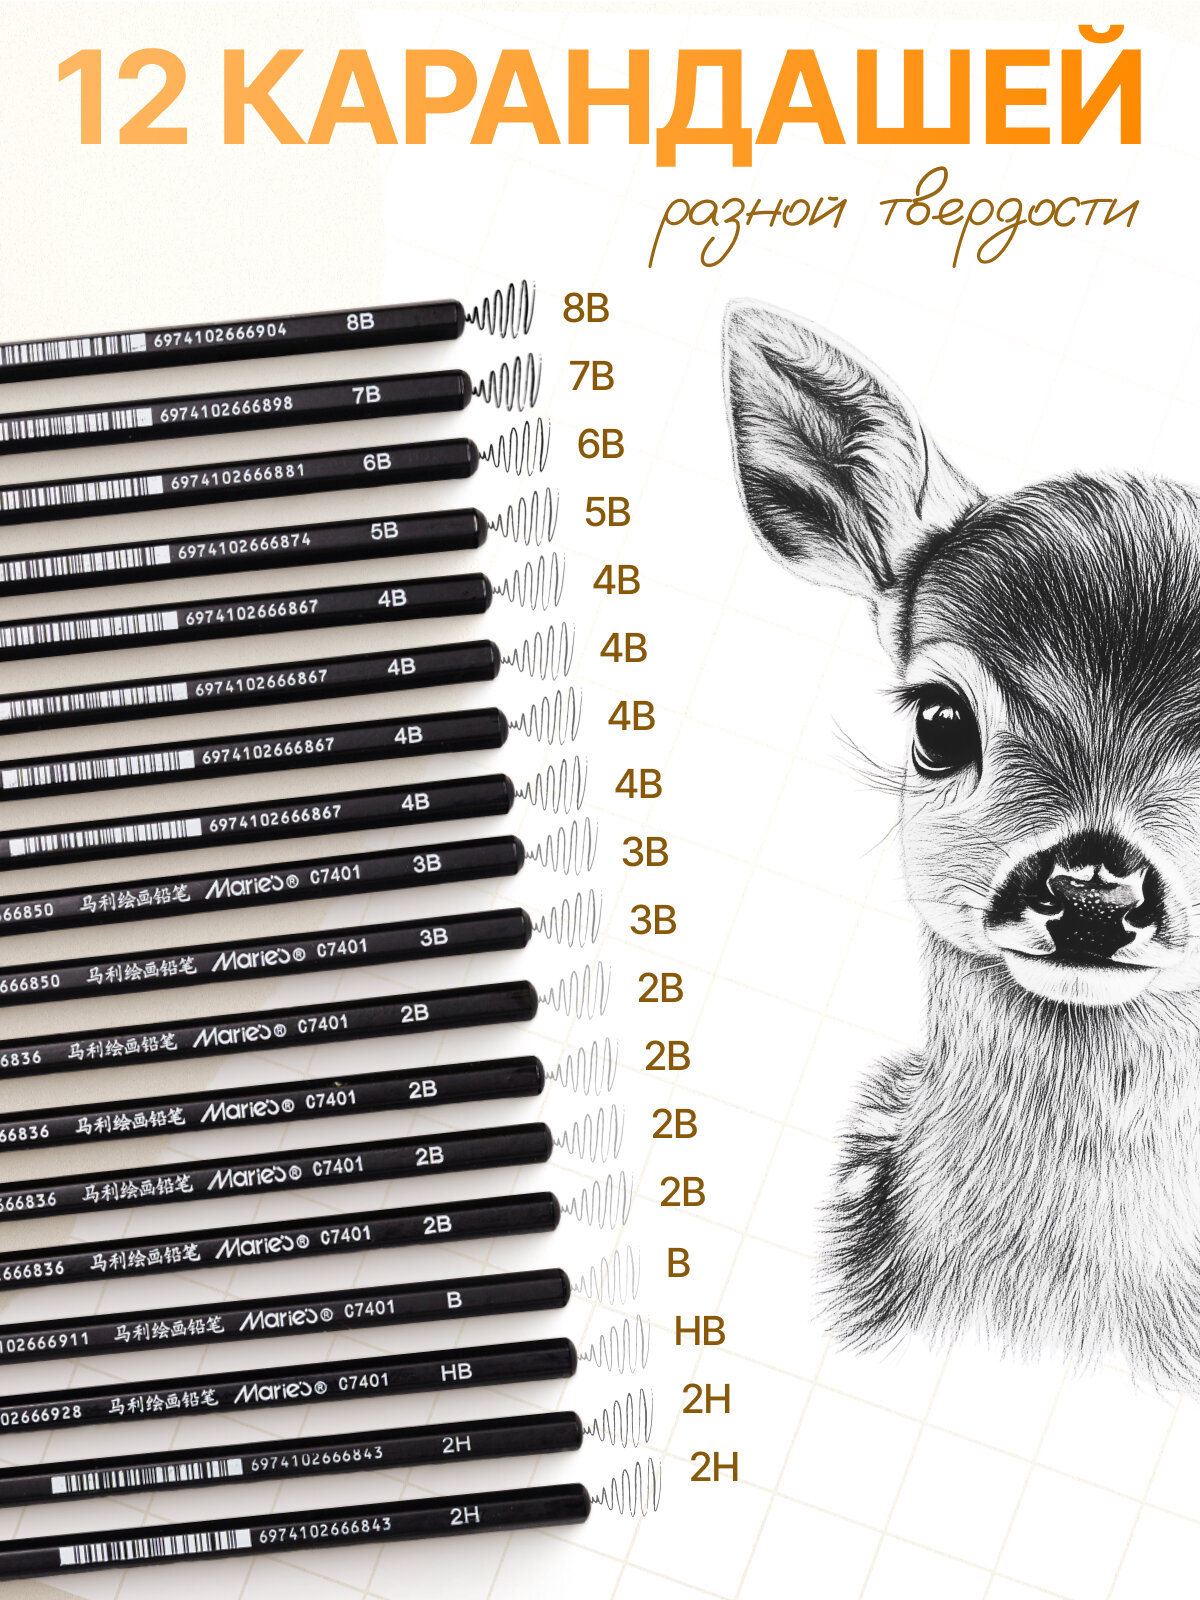 12 КАРАНДАШЕЙ
разной твердости
6974102666904 8B 8B
6974102666898 7B 7B
6974102666881 6B 6B
6974102666874 5B 5B
6974102666867 4B 4B
6974102666867 4B 4B
6974102666867 4B 4B
6974102666867 4B 4B
66850 马利绘画铅笔 Marie's® C7401 3B 3B
666850 马利绘画铅笔 Marie's® C7401 3B 3B
6836 马利绘画铅笔 Marie's® C7401 2B 2B
66836 马利绘画铅笔 Marie's® C7401 2B 2B
666836 马利绘画铅笔 Marie's® C7401 2B 2B
666836 马利绘画铅笔 Marie's® C7401 2B 2B
102666911 马利绘画铅笔 Marie's® C7401 B B
02666928 马利绘画铅笔 Marie's® C7401 HB HB
6974102666843 2H 2H
6974102666843 2H 2H